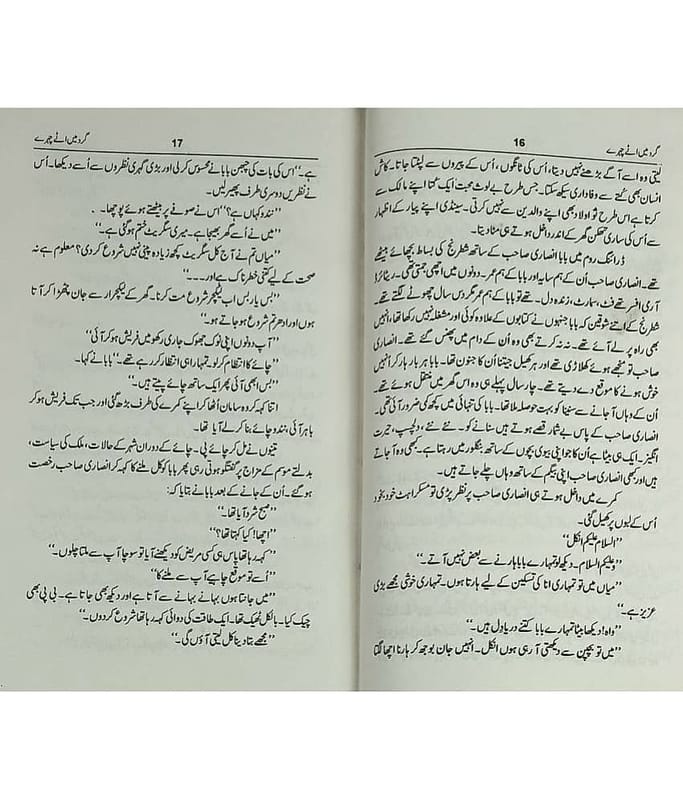 گرد میں اٹے چہرے 16
لیتی وہ اسے آگے بڑھنے نہیں دیتا، اُس کی ٹانگوں، اُس کے پیروں سے لپٹتا جاتا۔ کاش
انسان بھی کُتے سے وفاداری سیکھ سکتا۔ جس طرح بے لوث محبت ایک کُتا اپنے مالک سے
کرتا ہے اس طرح تو اولاد بھی اپنے والدین سے نہیں کرتی۔ سینڈی اپنے پیار کے اظہار
سے اُس کی ساری تھکن گھر کے اندر داخل ہوتے ہی مٹا دیتا۔
ڈرائنگ روم میں بابا انصاری صاحب کے ساتھ شطرنج کی بساط بچھائے بیٹھے
تھے۔ انصاری صاحب اُن کے ہم سایہ اور بابا کے ہم عمر۔ دونوں میں اچھی جمتی تھی۔ ریٹائرڈ
آرمی افسر تھے فٹ، سمارٹ، زندہ دل۔ تھے تو بابا کے ہم عمر مگر دس سال چھوٹے لگتے تھے۔
شطرنج کے اتنے شوقین کہ بابا جنہوں نے کتابوں کے علاوہ کوئی اور مشغلہ نہیں رکھا تھا، انہیں
بھی راہ پر لے آئے تھے۔ نہ نہ کرتے بھی وہ اُن کے دام میں پھنس گئے تھے۔ انصاری
صاحب تو منجھے ہوئے کھلاڑی تھے اور ہر کھیل جیتنا اُن کا جنون تھا۔ بابا ہر بار ہار کر انہیں
خوش ہونے کا موقع دے دیتے تھے۔ چار سال پہلے ہی وہ اس گھر میں منتقل ہوئے تھے
اُن کے وہاں آ جانے سے سنیتا کو بہت حوصلہ ملا تھا۔ بابا کی تنہائی میں کچھ کمی ضرور آئی تھی۔
انصاری صاحب کے پاس بے شمار قصے ہوتے ہیں سنانے کو۔ نئے نئے، دلچسپ، حیرت
انگیز۔ ایک ہی بیٹا ہے اُن کا جو اپنی بیوی بچوں کے ساتھ بنگلور میں رہتا ہے۔ کبھی وہ آ جاتے
ہیں اور کبھی انصاری صاحب اپنی بیگم کے ساتھ وہاں چلے جاتے ہیں۔
کمرے میں داخل ہوتے ہی انصاری صاحب پر نظر پڑی تو مسکراہٹ خود بخود
اُس کے لبوں پر کھیل گئی۔
’’السلام علیکم انکل‘‘
’’وعلیکم السلام۔ دیکھو تو تمہارے بابا ہارنے سے بعض نہیں آتے۔‘‘
’’میاں میں تو تمہاری انا کی تسکین کے لیے ہارتا ہوں۔ تمہاری خوشی مجھے بڑی
عزیز ہے۔‘‘
’’واہ! دیکھا بیٹا تمہارے بابا کتنے دریا دل ہیں۔‘‘
’’میں تو بچپن سے دیکھتی آ رہی ہوں انکل۔ انہیں جان بوجھ کر ہارنا اچھا لگتا
گرد میں اٹے چہرے 17
ہے۔‘‘ اس کی بات کی چبھن بابا نے محسوس کر لی اور بڑی گہری نظروں سے اُسے دیکھا۔ اُس
نے نظریں دوسری طرف پھیر لیں۔
’’نندو کہاں ہے؟‘‘ اس نے صوفے پر بیٹھتے ہوئے پوچھا۔
’’میں نے اُسے گھر بھیجا ہے۔ میری سگریٹ ختم ہو گئی ہے۔‘‘
’’میاں تم نے آج کل سگریٹ کچھ زیادہ پینی نہیں شروع کر دی؟ معلوم ہے نہ
صحت کے لیے کتنی خطرناک ہے اور۔۔۔‘‘
’’بس یار بس اب لیکچر شروع مت کرنا۔ گھر کے لیکچرار سے جان چھڑا کر آتا
ہوں اور ادھر تم شروع ہو جاتے ہو۔‘‘
’’آپ دونوں اپنی نوک جھوک جاری رکھو میں فریش ہو کر آئی‘‘
’’چائے کا انتظام کر لو۔ تمہارا ہی انتظار کر رہے تھے۔‘‘ بابا نے کہا۔
’’بس ابھی آئی پھر ایک ساتھ چائے پیتے ہیں۔‘‘
اتنا کہہ کر وہ سامان اُٹھا کر اپنے کمرے کی طرف بڑھ گئی اور جب تک فریش ہو کر
باہر آئی، نندو چائے بنا کر لے آیا تھا۔
تینوں نے مل کر چائے پی۔ چائے کے دوران شہر کے حالات، ملک کی سیاست،
بدلتے موسم کے مزاج پر گفتگو ہوتی رہی پھر بابا کو کل ملنے کا کہہ کر انصاری صاحب رخصت
ہو گئے۔ اُن کے جانے کے بعد بابا نے بتایا کہ:
’’صبح شرد آیا تھا۔‘‘
’’اچھا! کیا کہتا تھا؟‘‘
’’کہہ رہا تھا پاس ہی کسی مریض کو دیکھنے آیا تو سوچا آپ سے ملتا چلوں۔‘‘
’’اُسے تو موقع چاہیے آپ سے ملنے کا‘‘
’’میں جانتا ہوں بہانے بہانے سے آتا ہے اور دیکھ بھی جاتا ہے۔ بی پی بھی
چیک کیا۔ بالکل ٹھیک تھا۔ ایک طاقت کی دوائی کہہ رہا تھا شروع کر دوں۔‘‘
’’مجھے بتا دینا کل لیتی آؤں گی۔‘‘